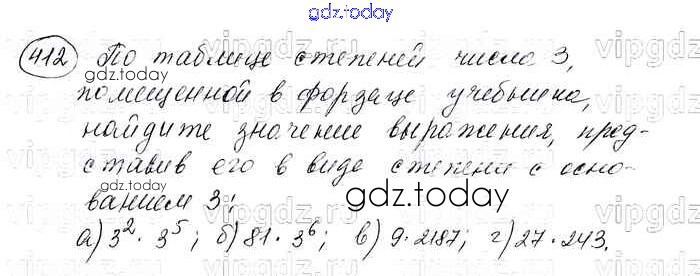 gdz.today
412 По таблице степеней числа 3,
gdz.today
помещенной в форзаце учебника,
найдите значение выражения, пред-
ставив его в виде степени с осно-
ванием 3:
gdz.today
а) 3² · 3⁵; б) 81 · 3⁶; в) 9 · 2187; г) 27 · 243.